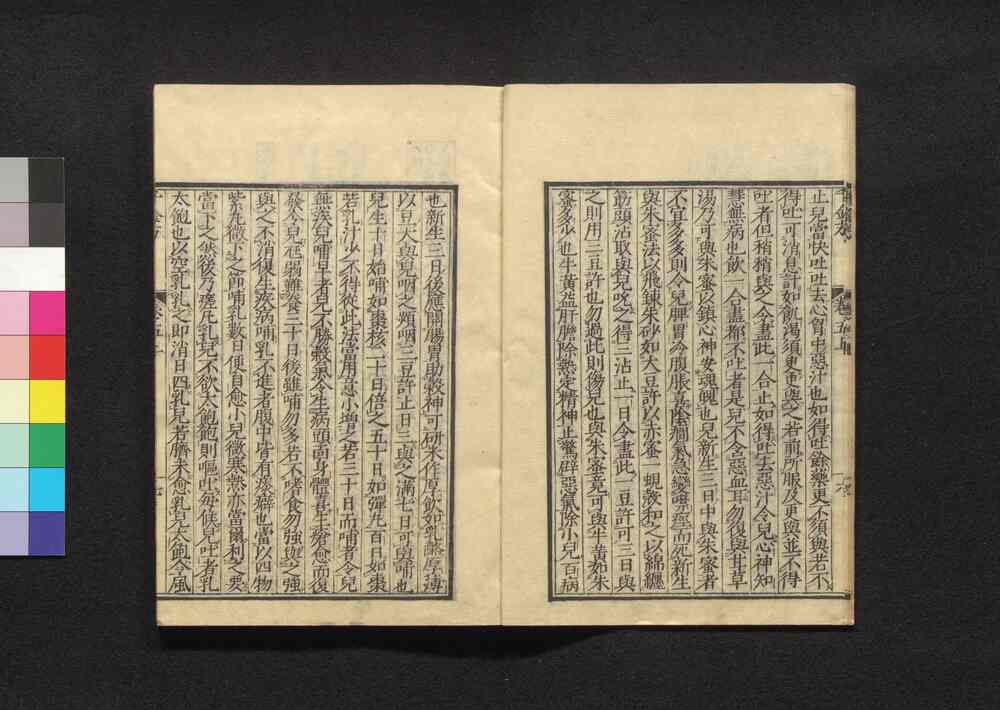 止兒當快吐吐去心胷中惡汁也如得吐餘藥更不須與若不
得吐可消息計如飢渴須更與之若前所服及更與並不得
吐者但稍稍與之令盡此一合止如得吐去惡汁令兒心神知
慧無病也飲一合盡都不吐者是兒不含惡血耳勿復與甘草
湯乃可與朱蜜以鎮心神安魂魄也兒新生三日中與朱蜜者
不宜多多則令兒脾胃冷腹脹喜陰癇氣急變噤痙而死新生
與朱蜜法以飛鍊朱砂如大豆許以赤蜜一蜆殼和之以綿纏
筯頭沾取與兒吮之得三沾止一日令盡此一豆許可三日與
之則用三豆許也勿過此則傷兒也與朱蜜竟可與牛黃如朱
蜜多少也牛黃益肝膽除熱定精神止驚辟惡氣除小兒百病
也新生三日後應開腸胃助穀神可研米作厚飲如乳酪厚薄
以豆大與兒咽之頻咽三豆許止日三與之滿七日可與哺也
兒生十日始哺如棗核二十日倍之五十日如彈丸百日如棗
若乳汁少不得從此法當用意小增之若三十日而哺者令兒
無疾兒哺早者兒不勝穀氣令生病頭面身體喜生瘡愈而復
發令兒尫弱難養三十日後雖哺勿多若不嗜食勿強與之強
與之不消復生疾病哺乳不進者腹中皆有痰癖也當以四物
紫丸微下之節哺乳數日便自愈小兒微寒熱亦當爾利之要
當下之然後乃瘥凡乳兒不欲太飽飽則嘔吐每候兒吐者乳
太飽也以空乳乳之即消日四乳兒若臍未愈乳兒太飽令風